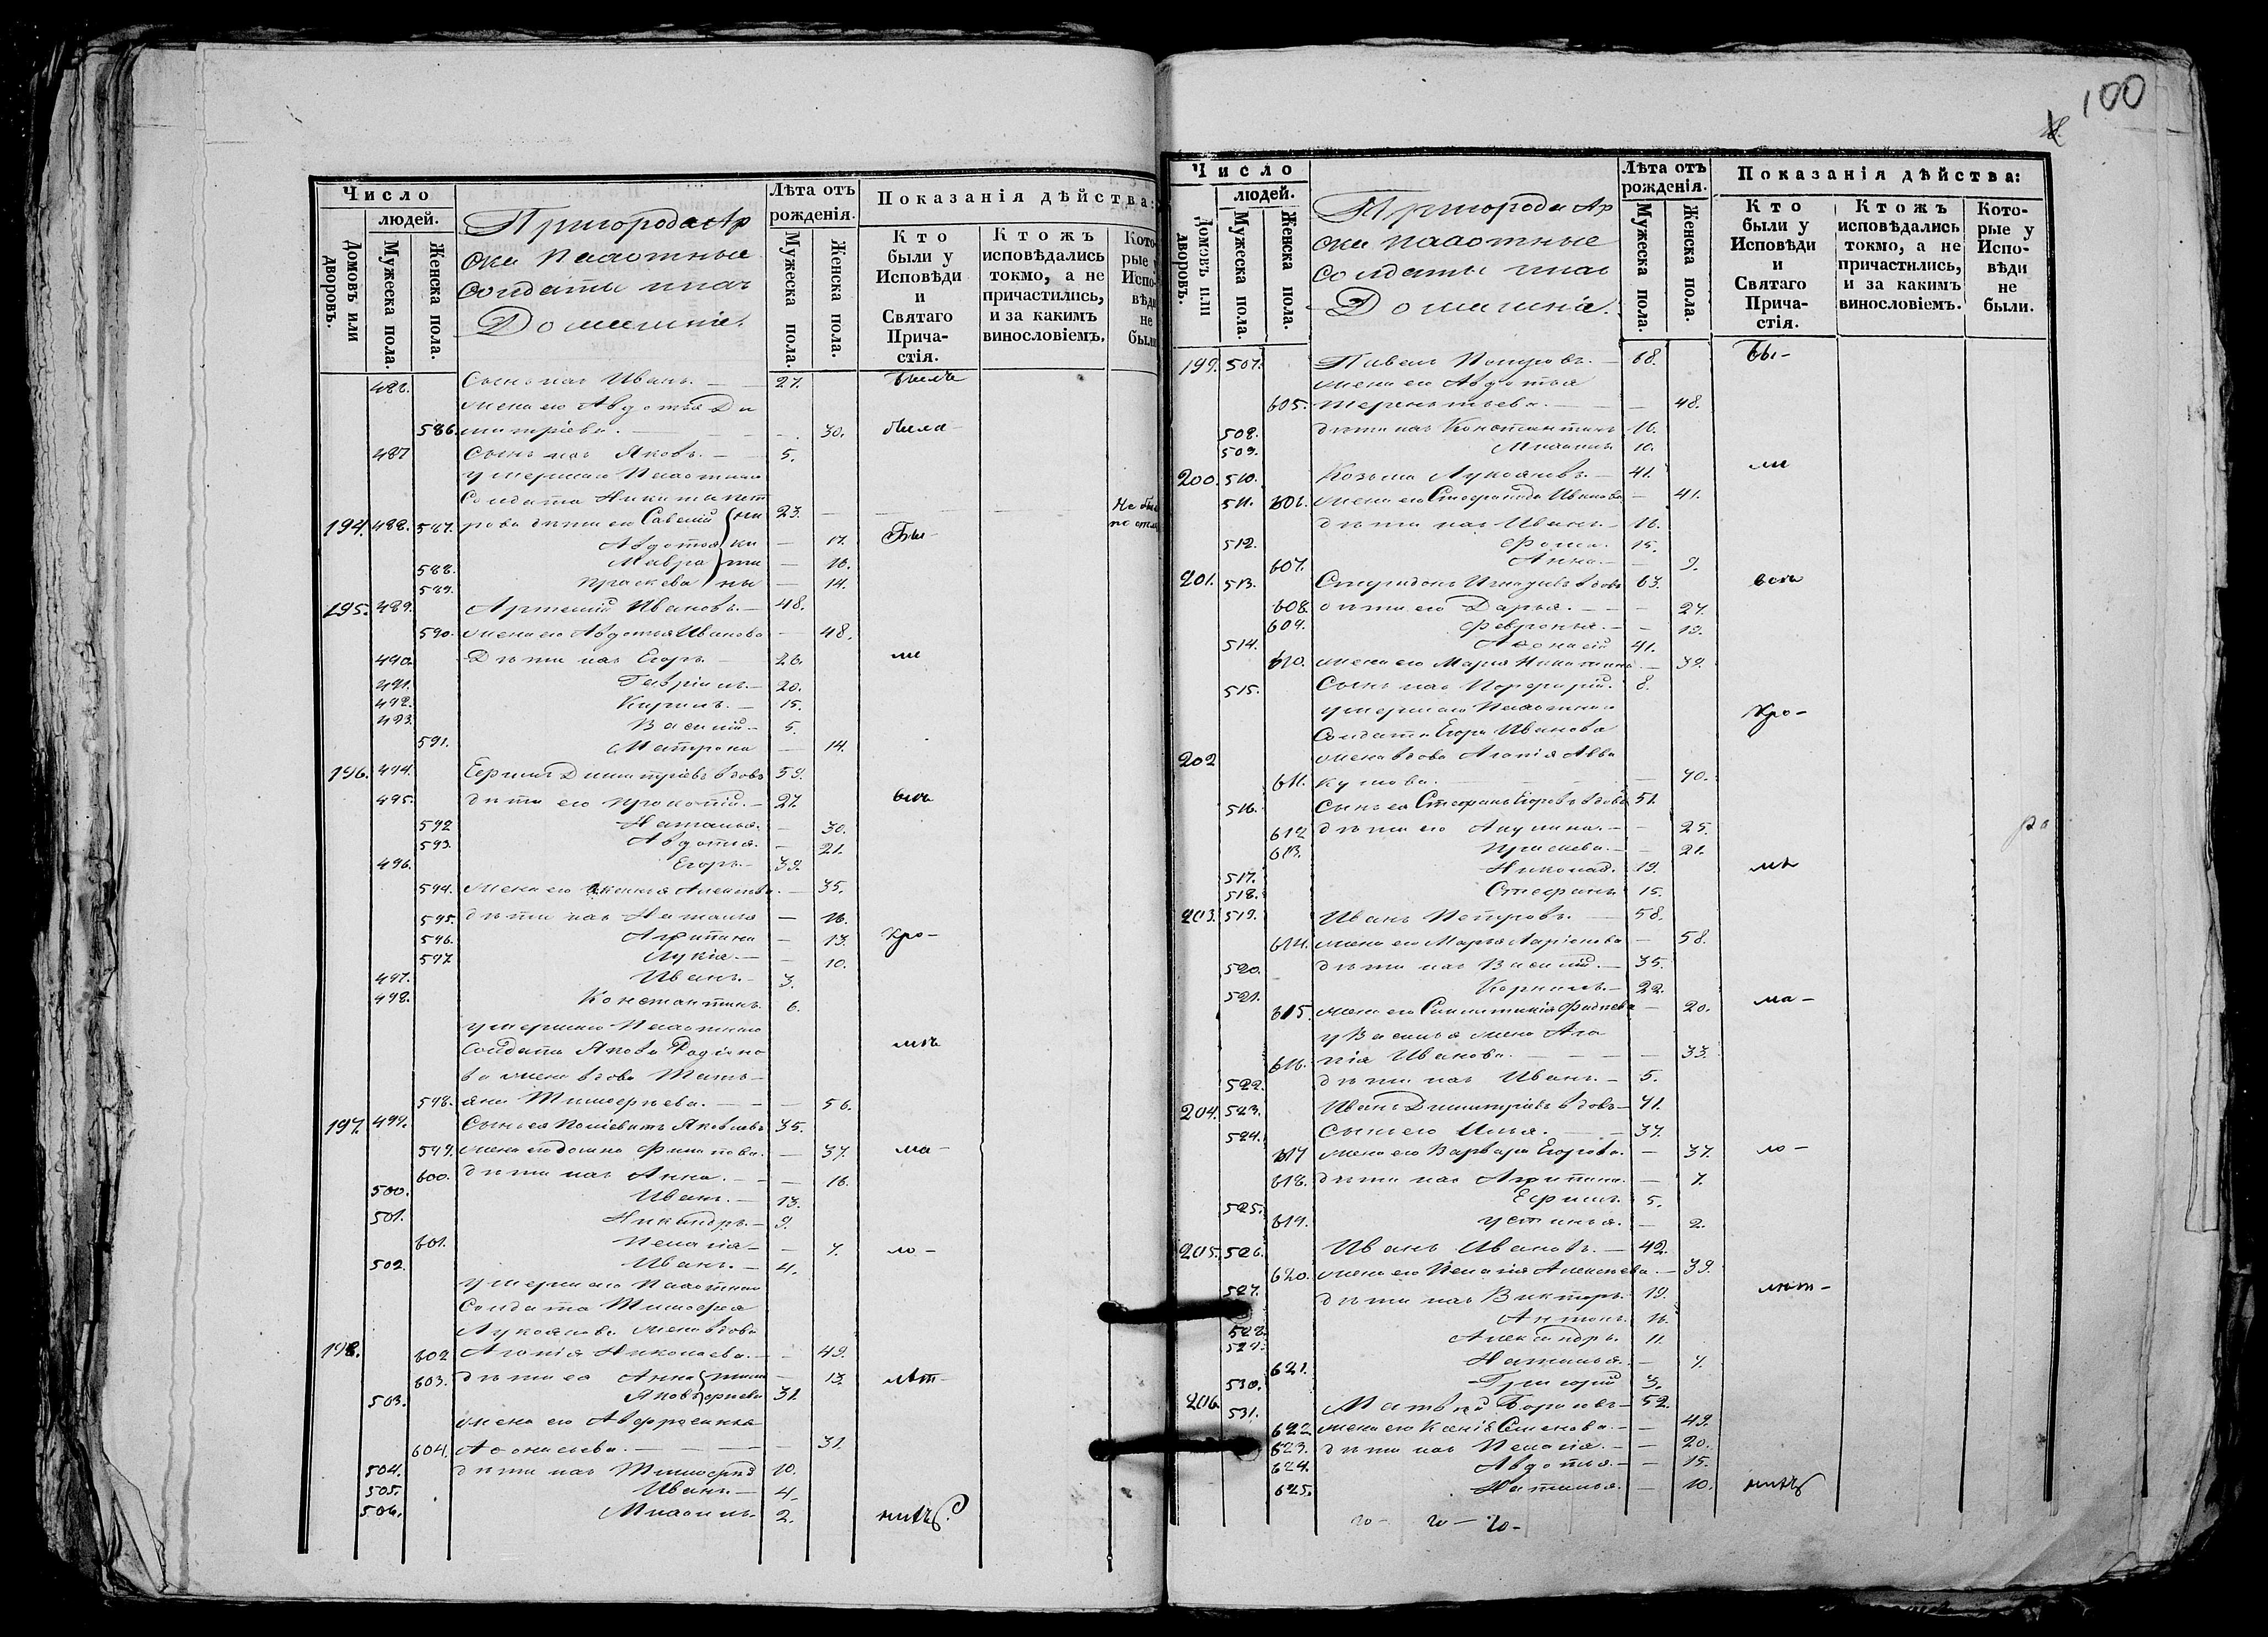 Число
людей.
Домовъ или дворовъ.
Мужеска пола.
Женска пола.
Пригорода Ар
Солдаты ихъ
Домашніе.
Лѣта отъ рожденія.
Мужеска пола.
Женска пола.
Показанія дѣйства:
Кто были у Исповѣди и Святаго Прича-стія.
Ктожъ исповѣдались токмо, а не причастились, и за какимъ винословіемъ.
488. Сынъ ихъ Иванъ. 27. былъ
жена его Авдотья Ди
586. митріева. 30. была
487 Сынъ ихъ Яковъ. 5.
умершаго
Солдата Никиты Пет
194. 488. 587. рова дѣти его Савелій 23.
Авдотья 17. Бы-
588. Мавра 16.
589. Праскева 14.
195. 489. Артемій Ивановъ. 48.
590. жена его Авдотья Иванова 48.
490. Дѣти ихъ Егоръ 26. ли
491. Гавріилъ. 20.
492. Кирилъ. 15.
493. Василій 5.
591. Матрона 14.
196. 494. Ефимъ Димитріевъ вдовъ 59.
495. дѣти его Прокопій. 27. всѣ
592 Наталья. 30.
593. Авдотья. 21.
496. Егоръ. 39.
594. жена его Алексѣева. 35.
595. дѣти ихъ Наталья 16.
596. Агрипина 13. кро-
597 Лукія. 10.
497. Иванъ. 3.
498. Константинъ 6.
умершаго
Солдата Якова Родіоно
ва жена вдова Тать-
598. яна Тимофѣева. 56.
197. 499. Сынъ ея Яковлевъ 35.
599. жена его Домна Филипова. 37. ма-
600. дѣти ихъ Анна. 16.
500. Иванъ. 13.
501. Никандръ. 9.
601. Пелагія 7. ло-
502. Иванъ. 4.
умершаго
Солдата Тимофея
Лукоянова жена вдова
198. 602 Агапія Николаева. 49.
603. дѣти ея Анна 13. лѣт-
503. Яковъ 31.
жена его Афросинья
604. Аѳонасьева. 31.
504. дѣти ихъ Тимофей 10.
505. Иванъ. 4.
506. Михаилъ. 2. нихъ.
100
Число
людей.
Домовъ или дворовъ.
Мужеска пола
Женска пола.
Пригорода Ар
Солдаты ихъ
Домашніе.
Лѣта отъ рожденія.
Мужеска пола.
Женска пола.
Показанія дѣйства:
Кто были у Исповѣди и Святаго Прича-стія.
Ктожъ исповѣдались токмо, а не причастились, и за какимъ винословіемъ.
Кото-рые у Испо-вѣди не были.
199. 507. Павелъ Петровъ. 68. Бы-
жена его Авдотья
605. Терентьева. 48.
508. дѣти ихъ Константинъ 16.
509. Михаилъ 10.
200. 510. Козьма Лукояновъ. 41. ли
511. 606. жена его Степанида Иванова 41.
дѣти ихъ Иванъ. 16.
512. Фома. 15.
607. Анна. 9.
201. 513. Спиридонъ Игнатьевъ вдовъ 63. всѣ
608. дѣти его Дарья. 27.
609. Февронья. 13.
514. Аѳонасій 41.
610. жена его Марья Никитина 39.
515. Сынъ ихъ Порфирій. 8.
умершаго
Солдата Егора Иванова кро-
202 жена вдова Агапія Авва
611. кумова. 70.
516. Сынъ ея Стефанъ Егоровъ вдовъ 51.
612 дѣти его Акулина. 25.
613. Праскева. 21.
517. Николай. 19. мѣ
518. Стефанъ 15.
203. 519. Иванъ Петровъ. 58.
614. жена его Марья Ларіонова 58.
520. дѣти ихъ Василій. 35.
521. Корнилъ. 22.
615. жена его Фадѣева 20. ма-
у Василья жена Ага
616. пія Иванова. 33.
522. дѣти ихъ Иванъ. 5.
204. 523. Иванъ Димитріевъ вдовъ 71.
524. Сынъ его Илья. 37.
617 жена его Варвара Егорова. 37. ло-
618. дѣти ихъ Агрипина. 7.
525. Ефимъ. 5.
619. Устинья. 2.
205. 526. Иванъ Ивановъ. 42.
620. жена его Пелагія Алексѣева. 39.
527. дѣти ихъ Викторъ. 19. лѣт-
528. Антонъ 16.
529. Александръ. 11.
621. Наталья. 7.
530. Григорій 3.
206. 531. Матвѣй Борисовъ 52.
622 жена его Ксенія Семенова. 49.
623. дѣти ихъ Пелагія. 20.
624. Авдотья. 15.
625. Наталья. 10. нихъ